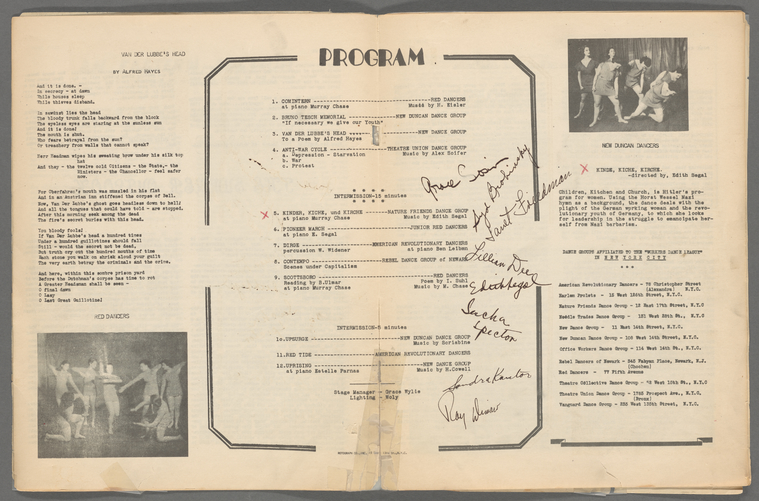 VAN DER LUBBE'S HEAD
BY ALFRED HAYES
And it is done. -
In secrecy - at dawn
While houses sleep
While thieves disband.
In sawdust lies the head
The bloody trunk falls backward from the block
The eyeless eyes are staring at the sunless sun
And it is done!
The mouth is shut.
Who fears betrayal from the gun?
Or treachery from walls that cannot speak?
Herr Headman wipes his sweating brow under his silk top
hat
And they - the twelve cold Citizens - the State,- the
Ministers - the Chancellor - feel safer
now.
You bloody fools!
If Van Der Lubbe's head a hundred times
Under a hundred guillotines should fall
Still - would the secret not be dead,
But truth cry out the hundred mouths of time
Each stone you walk on shriek aloud your guilt
The very earth betray the criminals and the crime.
And here, within this sombre prison yard
Before the Dutchman's corpse has time to rot
A Greater Headsman shall be seen -
O Final dawn
O Last Great Guillotine!
RED DANCERS
PROGRAM
1. COMINTERN - RED DANCERS
at piano Murray Chase Music by H. Eisler
2. BRUNO TESCH MEMORIAL - NEW DUNCAN DANCE GROUP
"If necessary we give our Youth"
3. VAN DER LUBBE'S HEAD - NEW DANCE GROUP
To a Poem by Alfred Hayes
4. ANTI-WAR CYCLE - THEATRE UNION DANCE GROUP
a. Depression - Starvation Music by Alex Soifer
b. War
c. Protest
INTERMISSION-15 minutes
X 5. KINDER, KUCHE, und KIRCHE - NATURE FRIENDS DANCE GROUP
at piano Murray Chase Music by Edith Segal
6. PIONEER MARCH - JUNIOR RED DANCERS
at piano E. Segal
7. DIRGE - AMERICAN REVOLUTIONARY DANCERS
percussion W. Widener at piano Ben Leiben
8. CONTEMPO - REBEL DANCE GROUP of NEWARK
Scenes under Capitalism
9. SCOTTSBORO - RED DANCERS
Reading by Poem by
at piano Murray Chase Music by M. Chase
INTERMISSION-5 minutes
10. UPSURGE - NEW DUNCAN DANCE GROUP
Music by Scriabine
11. RED TIDE - AMERICAN REVOLUTIONARY DANCERS
12. UPRISING - NEW DANCE GROUP
at piano Estelle Parnas Music by H. Cowell
Stage Manager - Grace Wylie
Lighting - Nely
Lillian
Edith Segal
Sasha
Spector
Sandra Kantor
Ray
NEW DUNCAN DANCERS
X KINDE, KICHE, KIRCHE.
-directed by, Edith Segal
Children, Kitchen and Church, is Hitler's pro-
gram for women. Using the Horst Wessel Nazi
hymn as a background, the dance deals with the
plight of the German working women and the revo-
lutionary youth of Germany, to which she looks
for leadership in the struggle to emancipate her-
self from Nazi barbarism.
DANCE GROUPS AFFILIATED TO THE "WORKERS DANCE LEAGUE"
IN NEW YORK CITY
* * *
American Revolutionary Dancers - 75 Christopher Street
(Alexandra) N.Y.C.
Harlem Prolets - 15 West 126th Street, N.Y.C.
Nature Friends Dance Group - 12 East 17th Street, N.Y.C.
Needle Trades Dance Group - 131 West 28th St., N.Y.C.
New Dance Group - 11 East 14th Street, N.Y.C.
New Duncan Dance Group - 106 West 14th Street, N.Y.C.
Office Workers Dance Group - 114 West 14th St., N.Y.C.
Rebel Dancers of Newark - Newark, N.J.
Red Dancers - 77 Fifth Avenue
Theatre Collective Dance Group - N.Y.C.
Theatre Union Dance Group - 1765 Prospect Ave., N.Y.C.
(Bronx)
Vanguard Dance Group - N.Y.C.